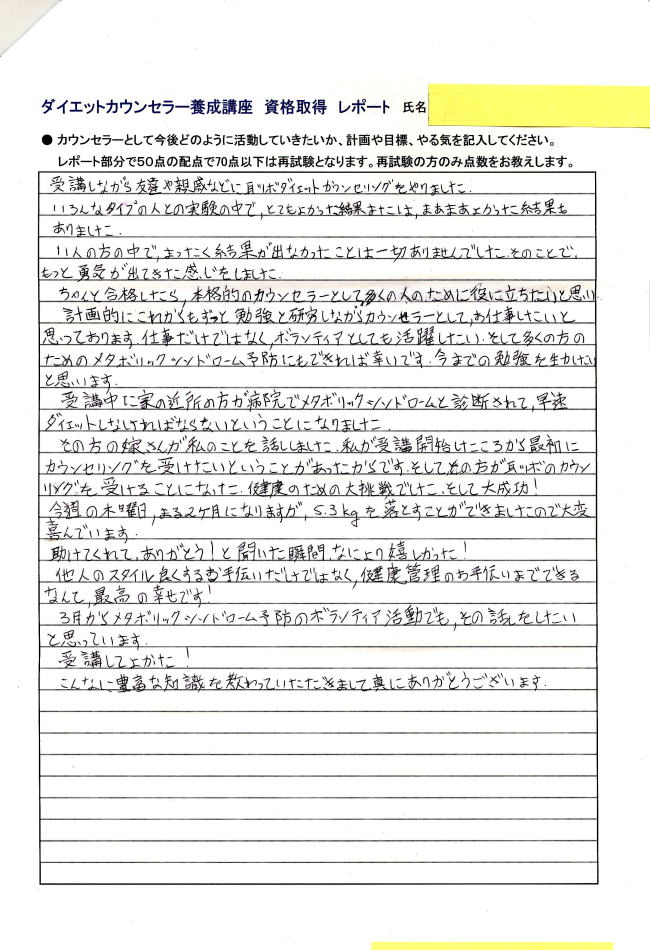 ダイエットカウンセラー養成講座 資格取得 レポート 氏名
● カウンセラーとして今後どのように活動していきたいか、計画や目標、やる気を記入してください。
レポート部分で50点の配点で70点以下は再試験となります。再試験の方のみ点数をお教えします。
受講しながら友達や親戚などに耳ツボダイエットカウンセリングをやりました.
いろんなタイプの人との実験の中で,とてもよかった結果または,まあまあよかった結果も
ありました.
11人の方の中で,まったく結果が出なかったことは一切ありませんでした.そのことで,
もっと勇気が出てきた感じをしました.
ちゃんと合格したら,本格的のカウンセラーとして多くの人のために役に立ちたいと思い
計画的にこれからもずっと勉強と研究しながらカウンセラーとして,お仕事したいと
思っております.仕事だけではなく,ボランティアとしても活躍したい.そして多くの方の
ためのメタボリックシンドローム予防にもできれば幸いです.今までの勉強を生かしたい
と思います.
受講中に家の近所の方が病院でメタボリックシンドロームと診断されて,早速
ダイエットしなければならないということになりました.
その方の嫁さんが私のことを話ししました.私が受講開始したころから最初に
カウンセリングを受けたいということがあったからです.そして,その方が耳ツボのカウン
リングを受けることになった.健康のための大挑戦でした.そして大成功!
今週の木曜日,まる2ヶ月になりますが,5.3kgを落とすことができましたので大変
喜んでいます.
助けてくれて,ありがとう!と聞いた瞬間なにより嬉しかった!
他人のスタイル良くするお手伝いだけではなく,健康管理のお手伝いまでできる
なんて,最高の幸せです!
3月からメタボリックシンドローム予防のボランティア活動でも,その話しをしたい
と思っています.
受講してよかた!
こんなに豊富な知識を教わっていただきまして真にありがとうございます.